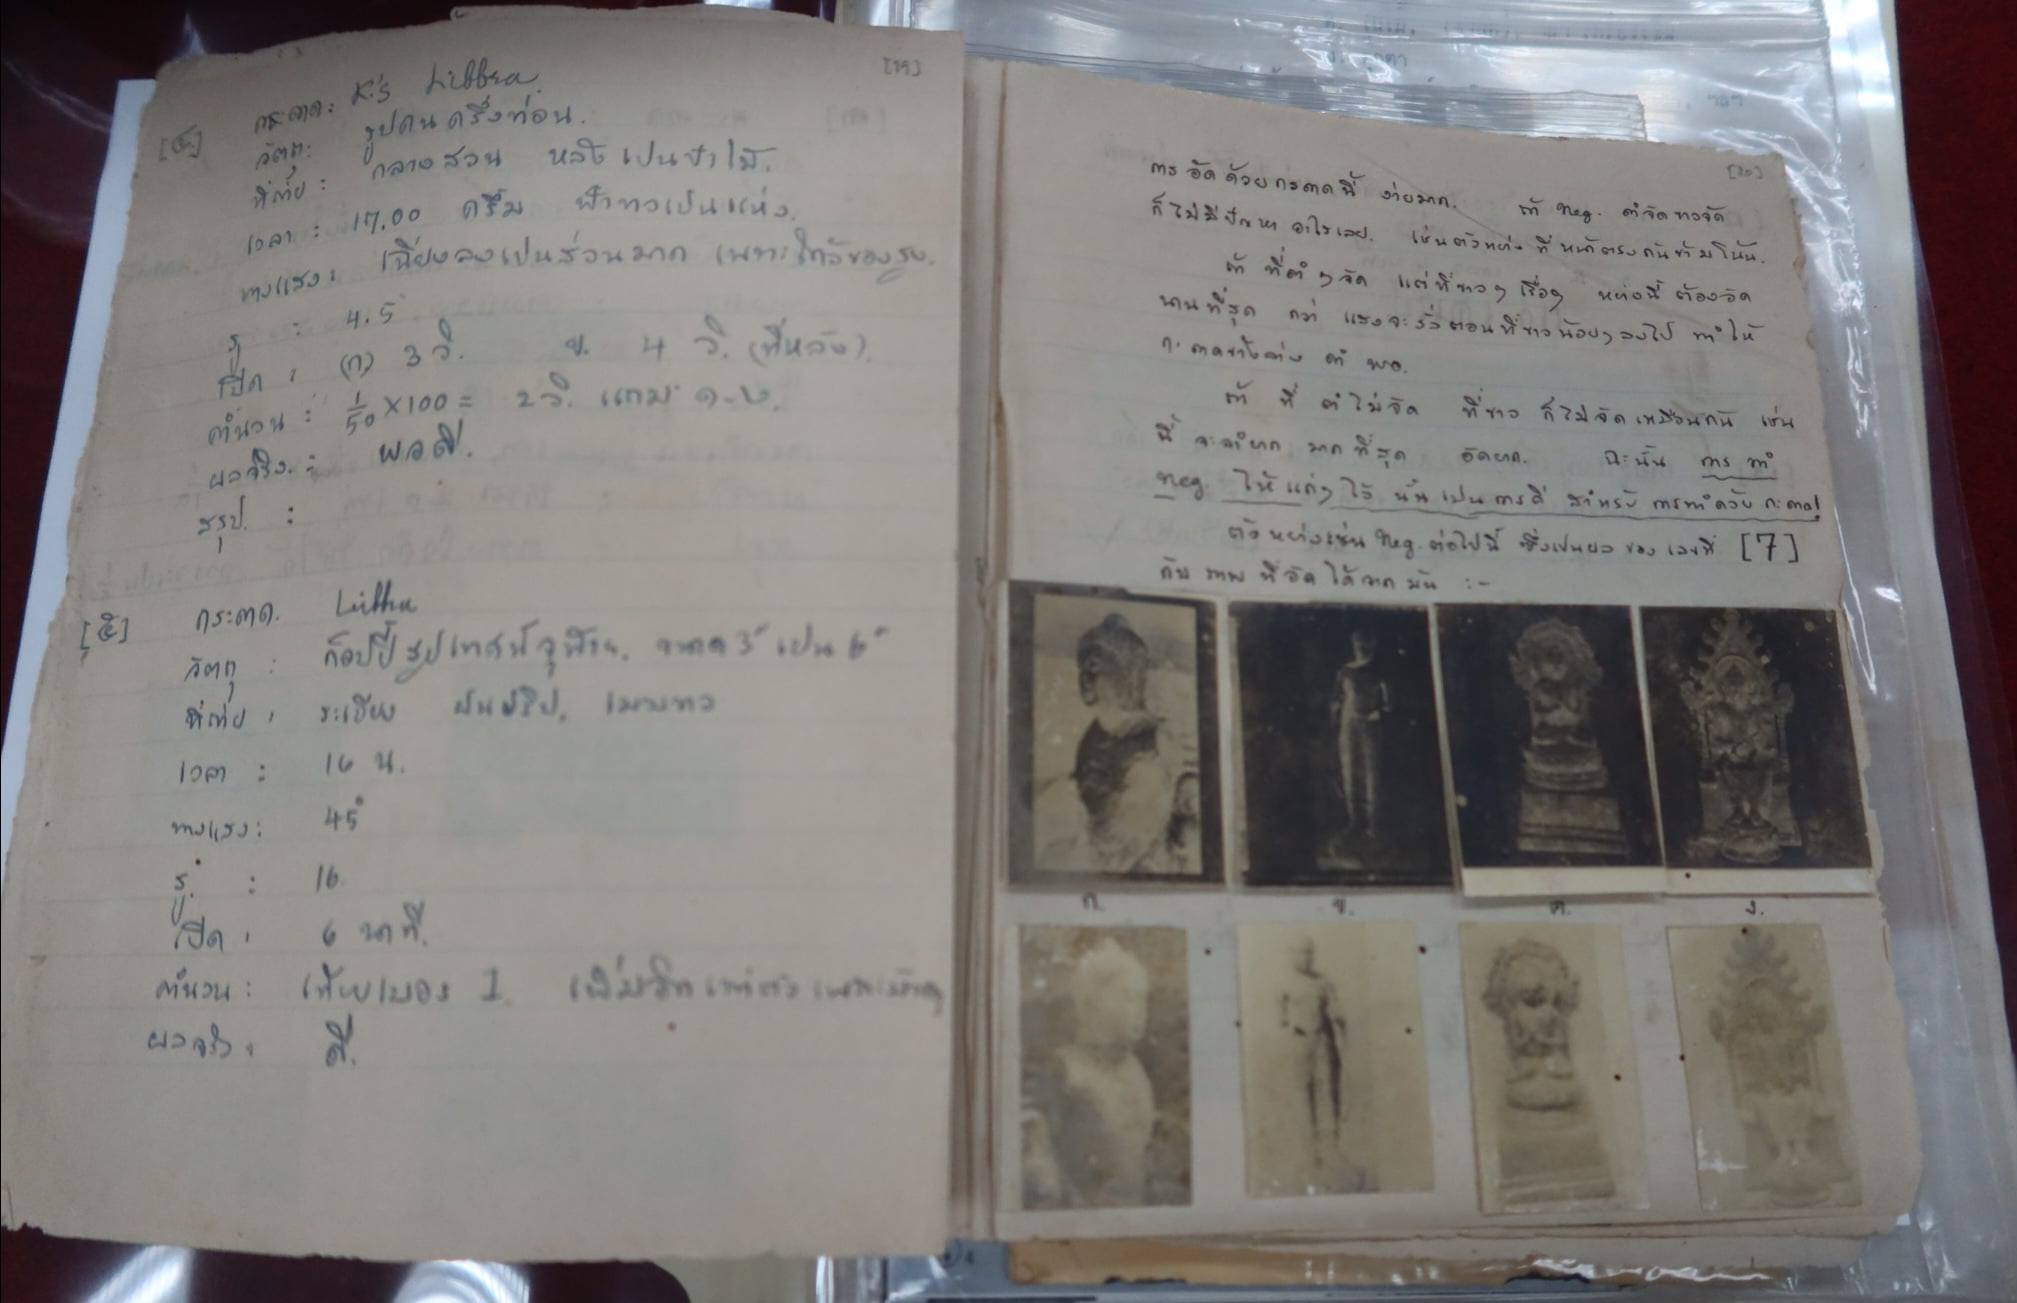 [๑๙]
[๔]
กระดาด: K's
วัตถุ: รูปคนครึ่งท่อน.
ที่ถ่าย: กลางสวน หลังเปนป่าไม้.
เวลา: 17.00 ครึ้ม ฟ้าขาวเป็นแห่ง.
ทางแสง: เฉียงลงเปนส่วนมาก เพราะใกล้ของสูง.
รู : 4.5
เปิด : (ก) 3 วิ. ข. 4 วิ. (ที่หลัง).
คำนวน : 1/50 ×100 = 2 วิ. แถม
ผลจริง. : พอดี.
สรุป. :
[๕] กระดาด.
วัตถุ : ก็อปปี้รูปเทศน์ ขนาด 3" เปน 6"
ที่ถ่าย : ระเบียง
เวลา : 16 น.
ทางแสง: 45°
รู. : 16.
เปิด : 6 นาที.
คำนวน :
ผลจริง : ดี.
[๒๐]
การอัดด้วยกระดาดนี้ ง่ายมาก. ถ้า neg. ดำจัดขาวจัด
ก็ไม่มีปัญหา อะไรเลย. เช่นตัวหย่างที่หน้าตรงกันข้ามโน้น.
ถ้า ที่ดำๆจัด แต่ที่ขาวๆ เรื่อๆ หย่างนี้ ต้องอัด
นานที่สุด กว่า แสงจะ ตอนที่ขาวน้อยๆลงไป ทำให้
ก. ดาดข้างล่าง ดำ พอ.
ถ้า ที่ ดำไม่จัด ที่ขาว ก็ไม่จัดเหมือนกัน เช่น
นี้ จะลำบาก มากที่สุด อัดยาก. ฉะนั้น การ ทำ
neg. ให้แก่ๆ ไว้ นั้นเปนการดี สำหรับ การทำด้วย ก. ดาด
ตัวหย่างเช่น neg. ต่อไปนี้ ซึ่งเปนผล ของ เลขที่ [7]
กับ ภาพ ที่อัดได้จากมัน :-
ก. ข. ค. ง.